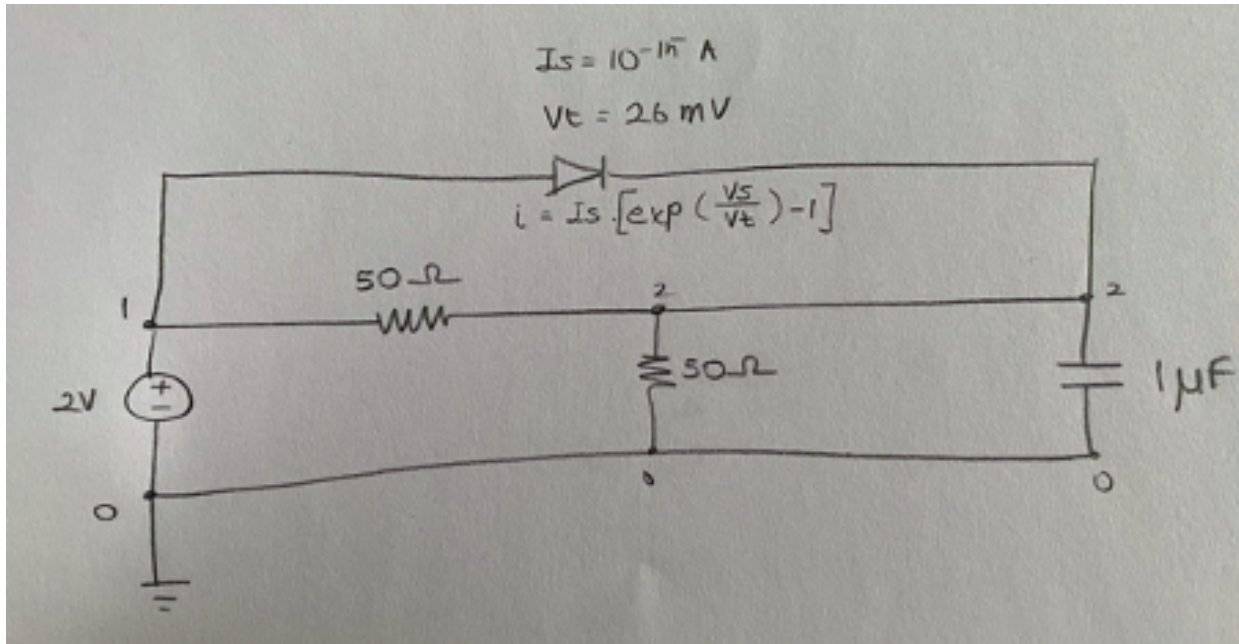 Is = 10⁻¹⁵ A
Vt = 26 mV
i = Is.[exp(Vs/Vt)-1]
50Ω
1
2
2
2V
50Ω
1μF
0
0
0